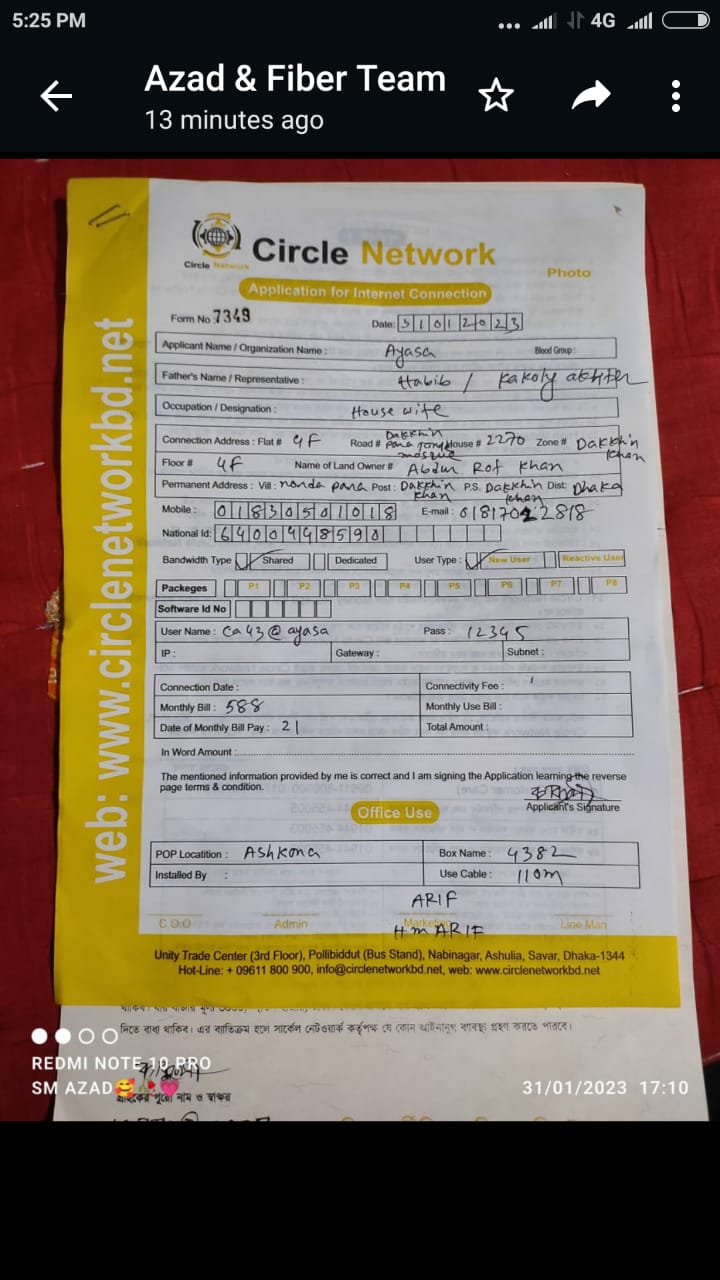 5:25 PM
4G
Azad & Fiber Team
13 minutes ago
Circle Network
Circle Network
Photo
Application for Internet Connection
Form No 7349
Date: 31012023
Applicant Name / Organization Name : Ayasa Blood Group :
Father's Name / Representative : Habib / Kakoly akhter
Occupation / Designation : House wife
Connection Address : Flat # 4F Road # Dakkhin Para Jony mosque House # 2270 Zone # Dakkhin Khan
Floor # 4F Name of Land Owner # Abdur Rof Khan
Permanent Address : Vill : nonda para Post : Dakkhin Khan P.S. Dakkhin Khan Dist: Dhaka
Mobile : 01830501018 E-mail : 01817042818
National Id: 6400448590
Bandwidth Type Shared Dedicated User Type : New User Reactive User
Packeges P1 P2 P3 P4 P5 P6 P7 P8
Software Id No
User Name : Ca43@ayasa Pass : 12345
IP : Gateway : Subnet :
Connection Date : Connectivity Fee :
Monthly Bill : 588 Monthly Use Bill :
Date of Monthly Bill Pay : 21 Total Amount :
In Word Amount :
The mentioned information provided by me is correct and I am signing the Application learning the reverse
page terms & condition.
Applicant's Signature
Office Use
POP Locatition : Ashkona Box Name : 4382
Installed By : Use Cable : 110m
ARIF
C.O.O Admin Marketing Line Man
Hm ARIF
Unity Trade Center (3rd Floor), Pollibiddut (Bus Stand), Nabinagar, Ashulia, Savar, Dhaka-1344
Hot-Line: + 09611 800 900, info@circlenetworkbd.net, web: www.circlenetworkbd.net
web: www.circlenetworkbd.net
দিতে বাধ্য থাকিব। এর ব্যতিক্রম হলে সার্কেল নেটওয়ার্ক কর্তৃপক্ষ যে কোন আইনানুগ ব্যবস্থা গ্রহণ করতে পারবে।
REDMI NOTE 10 PRO
SM AZAD🥰🥀💗
31/01/2023 17:10
গ্রাহকের পুরো নাম ও স্বাক্ষর